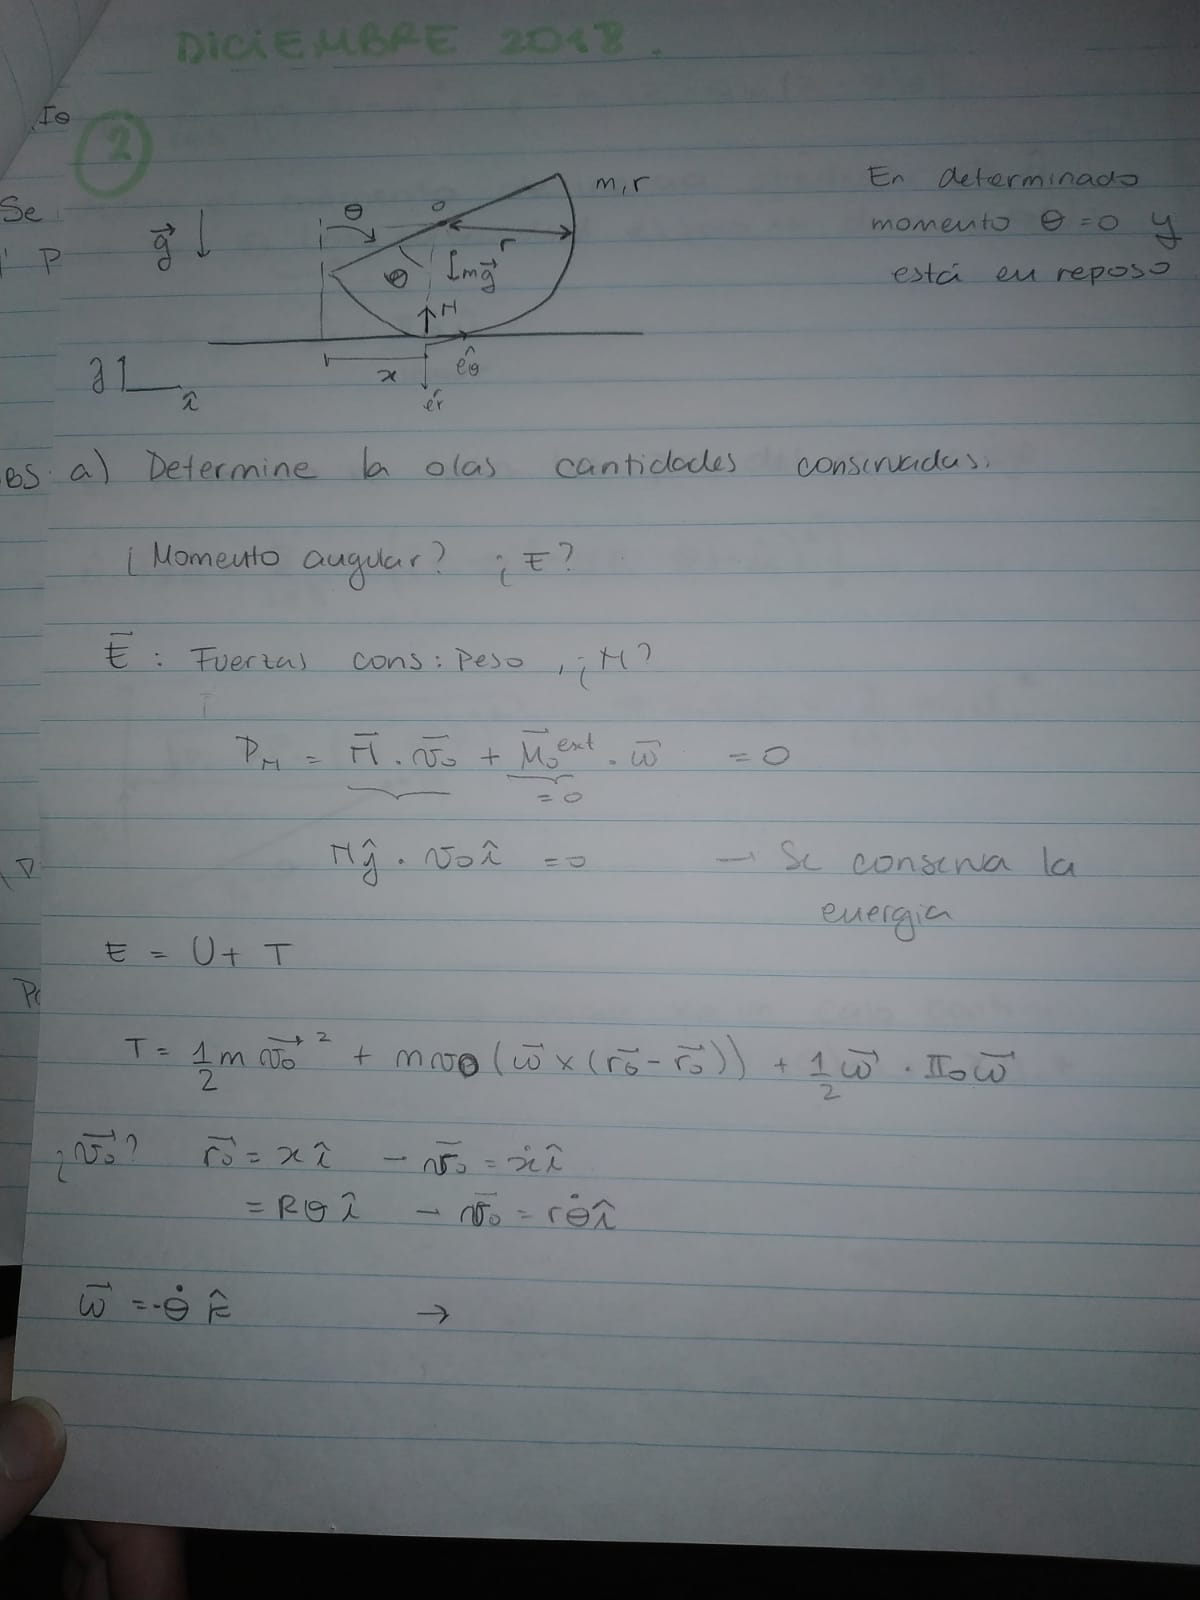 DICIEMBRE 2018.
Iθ
2
Se
P
θ
o
m,r
r
g⃗
θ
mg⃗
N
x
êθ
êr
ĵ
î
En determinado
momento θ=0 y
está en reposo
a) Determine la o las cantidades conservadas.
¿Momento angular? ¿E?
E : Fuerzas cons: Peso, ¿N?
P_N = N⃗ . v⃗o + M⃗o^ext . w⃗ = 0
= 0
Nĵ . vo î = 0 → Se conserva la
energia
E = U + T
T = 1/2 m v⃗o² + m vo (w⃗ × (r⃗G - r⃗o)) + 1/2 w⃗ . IIo w⃗
¿v⃗o? r⃗o = x î → v⃗o = ẋ î
= Rθ î → v⃗o = rθ̇ î
w⃗ = -θ̇ k̂ →